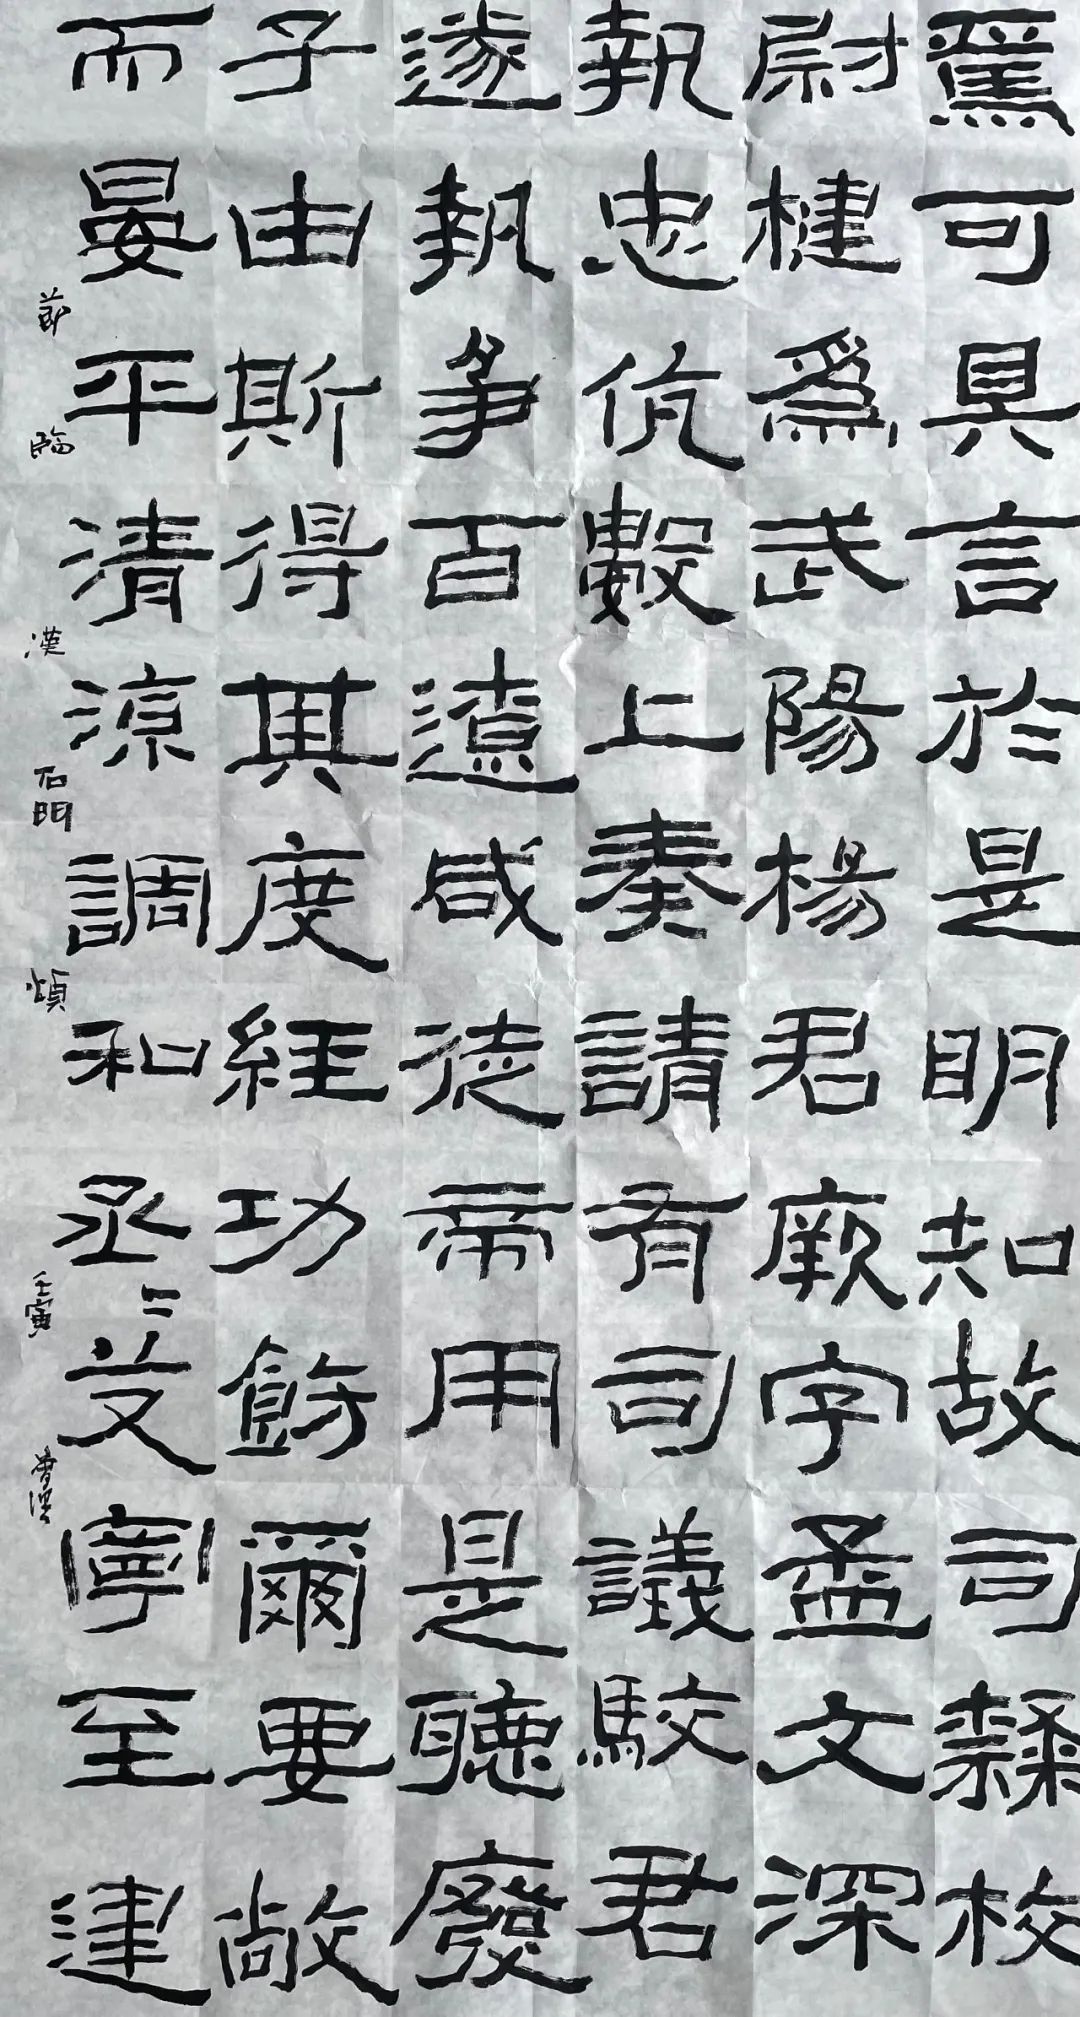 焉可具言於是明知故司隸校
尉楗爲武陽楊君厥字孟文深
執忠伉數上奏請有司議駮君
遂執爭百遼咸從帝用是聽廢
子由斯得其度經功飭爾要敞
而晏平清涼調和烝〻艾寧至建
節臨漢石門頌壬寅